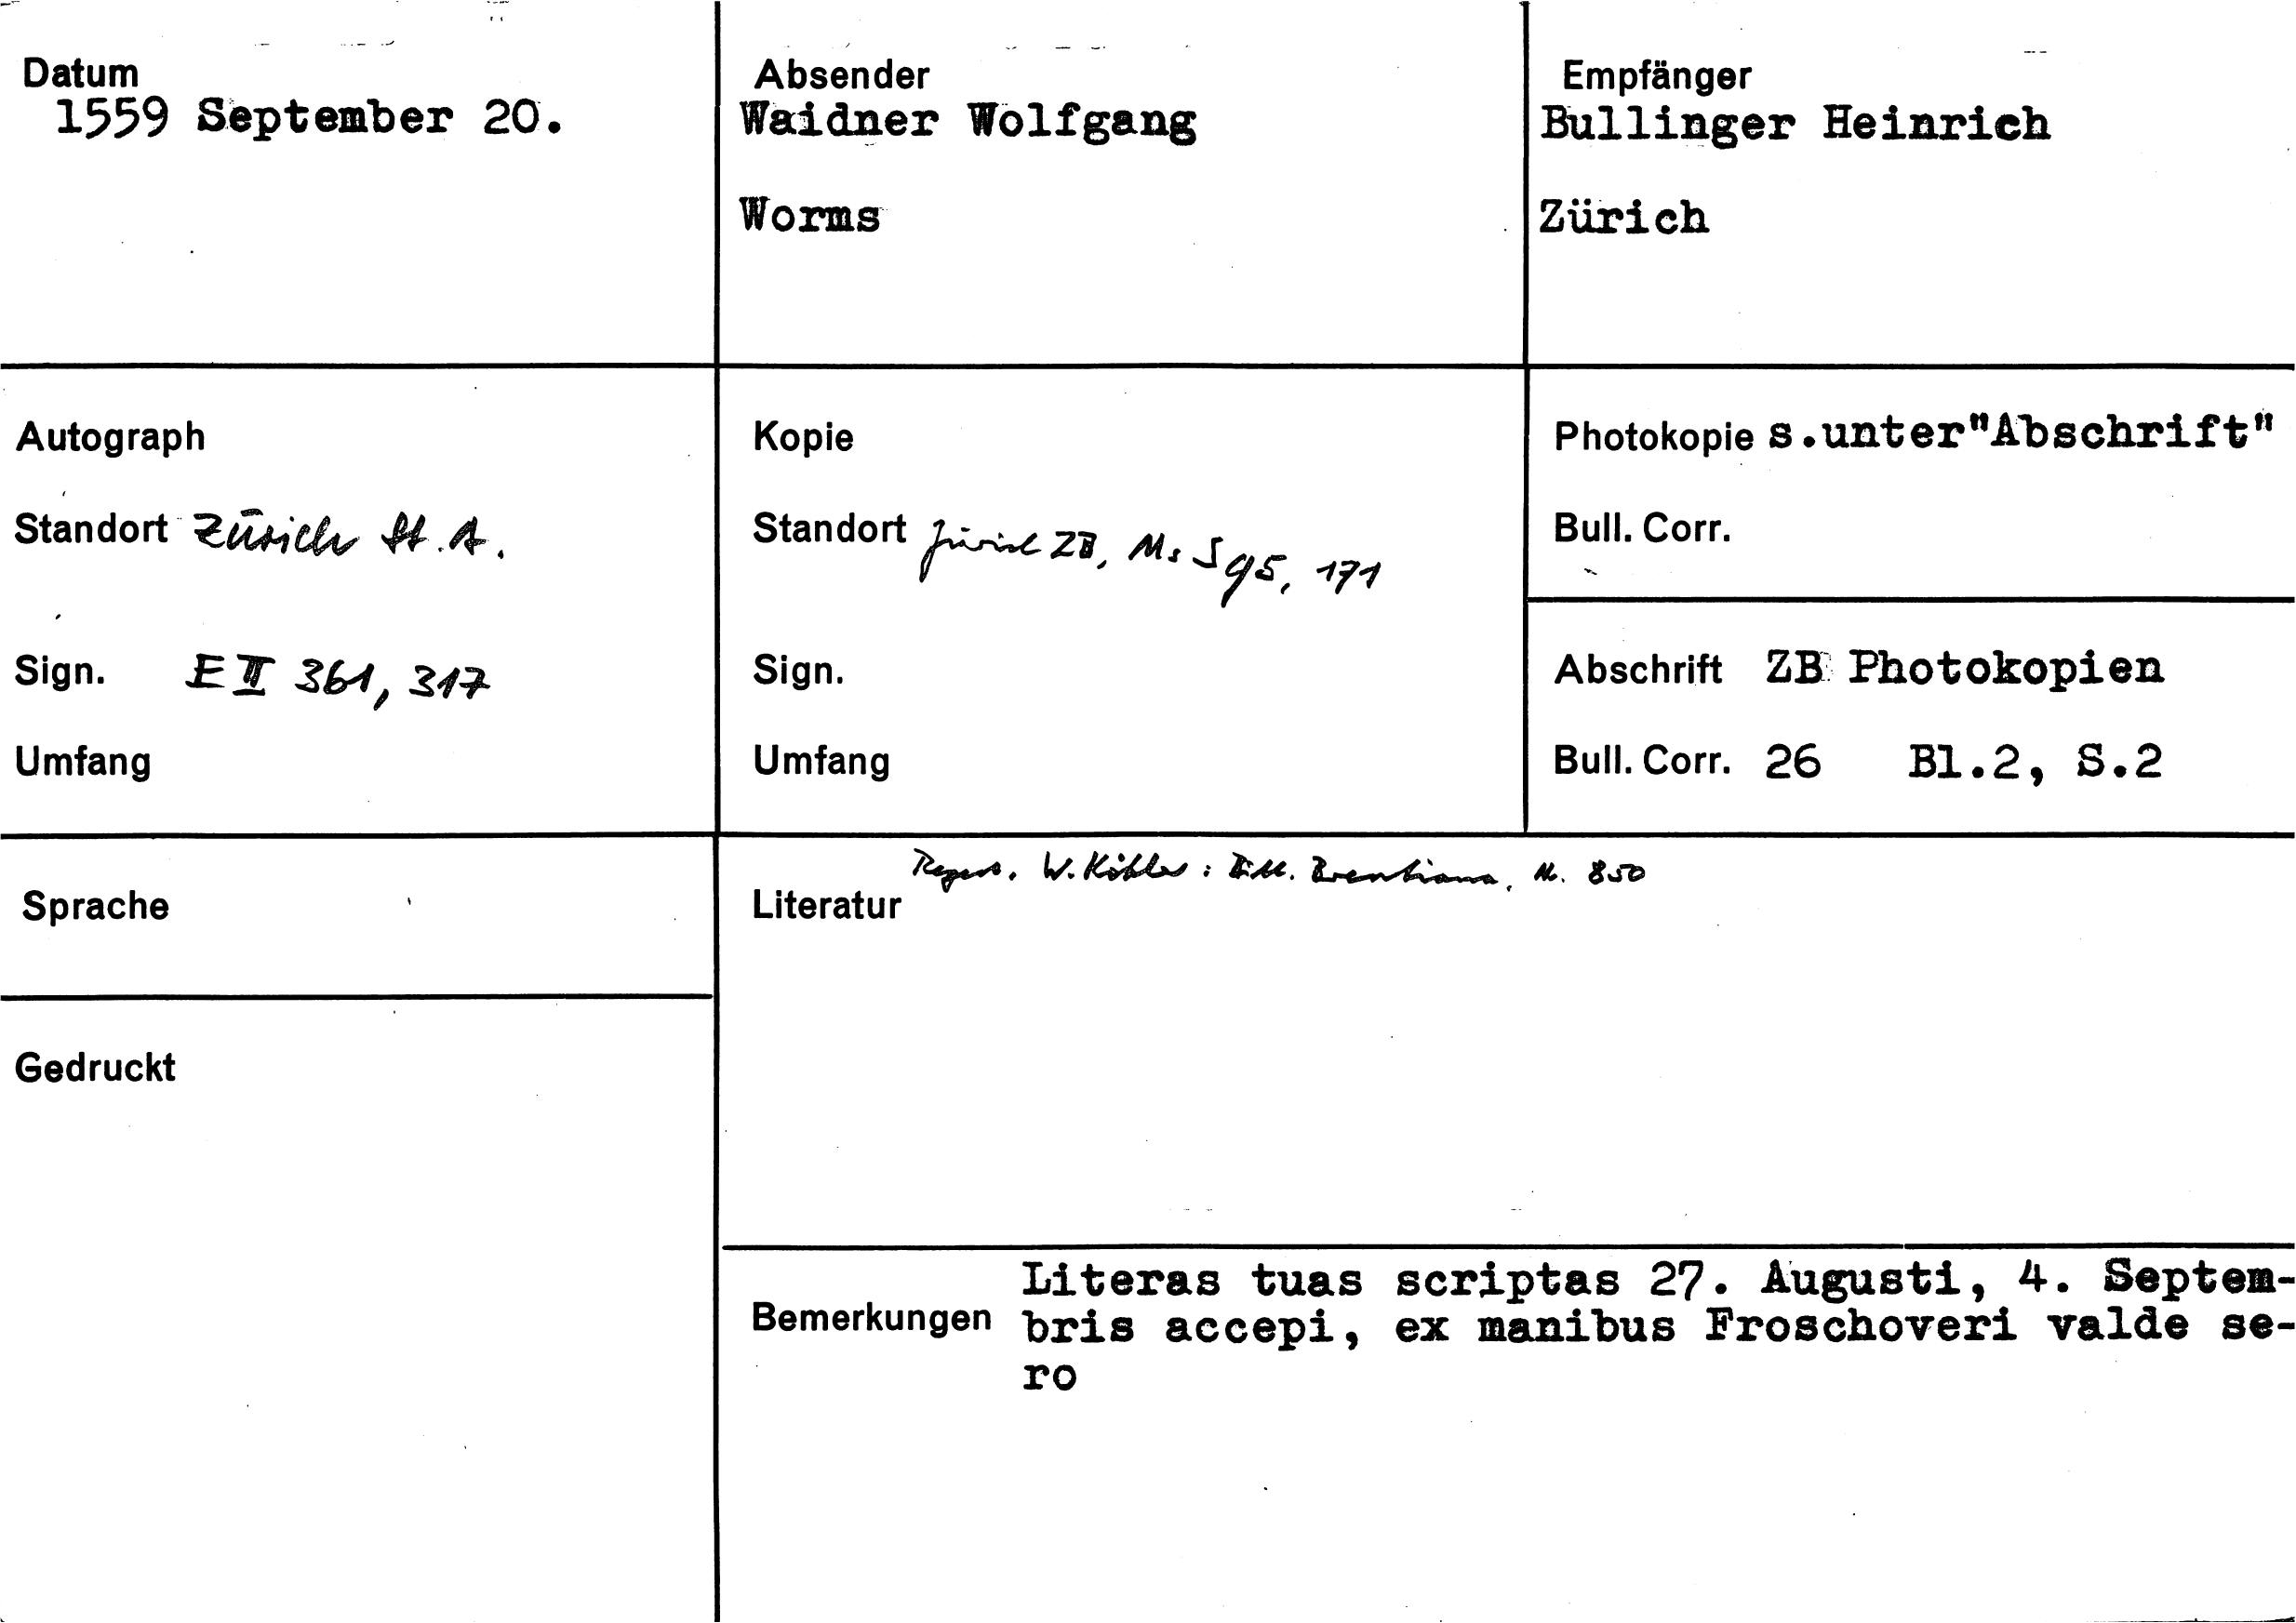 Datum
1559 September 20.
Absender
Waidner Wolfgang
Worms
Empfänger
Bullinger Heinrich
Zürich
Autograph
Standort Zürich St.A.
Sign. E II 361, 317
Umfang
Kopie
Standort Zürich ZB, Ms S 95, 171
Sign.
Umfang
Photokopie s.unter"Abschrift"
Bull. Corr.
Abschrift ZB Photokopien
Bull. Corr. 26 Bl.2, S.2
Sprache
Gedruckt
Regest. W. Köhler: Bibl. Brentiana, Nr. 850
Literatur
Literas tuas scriptas 27. Augusti, 4. Septem-
Bemerkungen bris accepi, ex manibus Froschoveri valde se-
ro